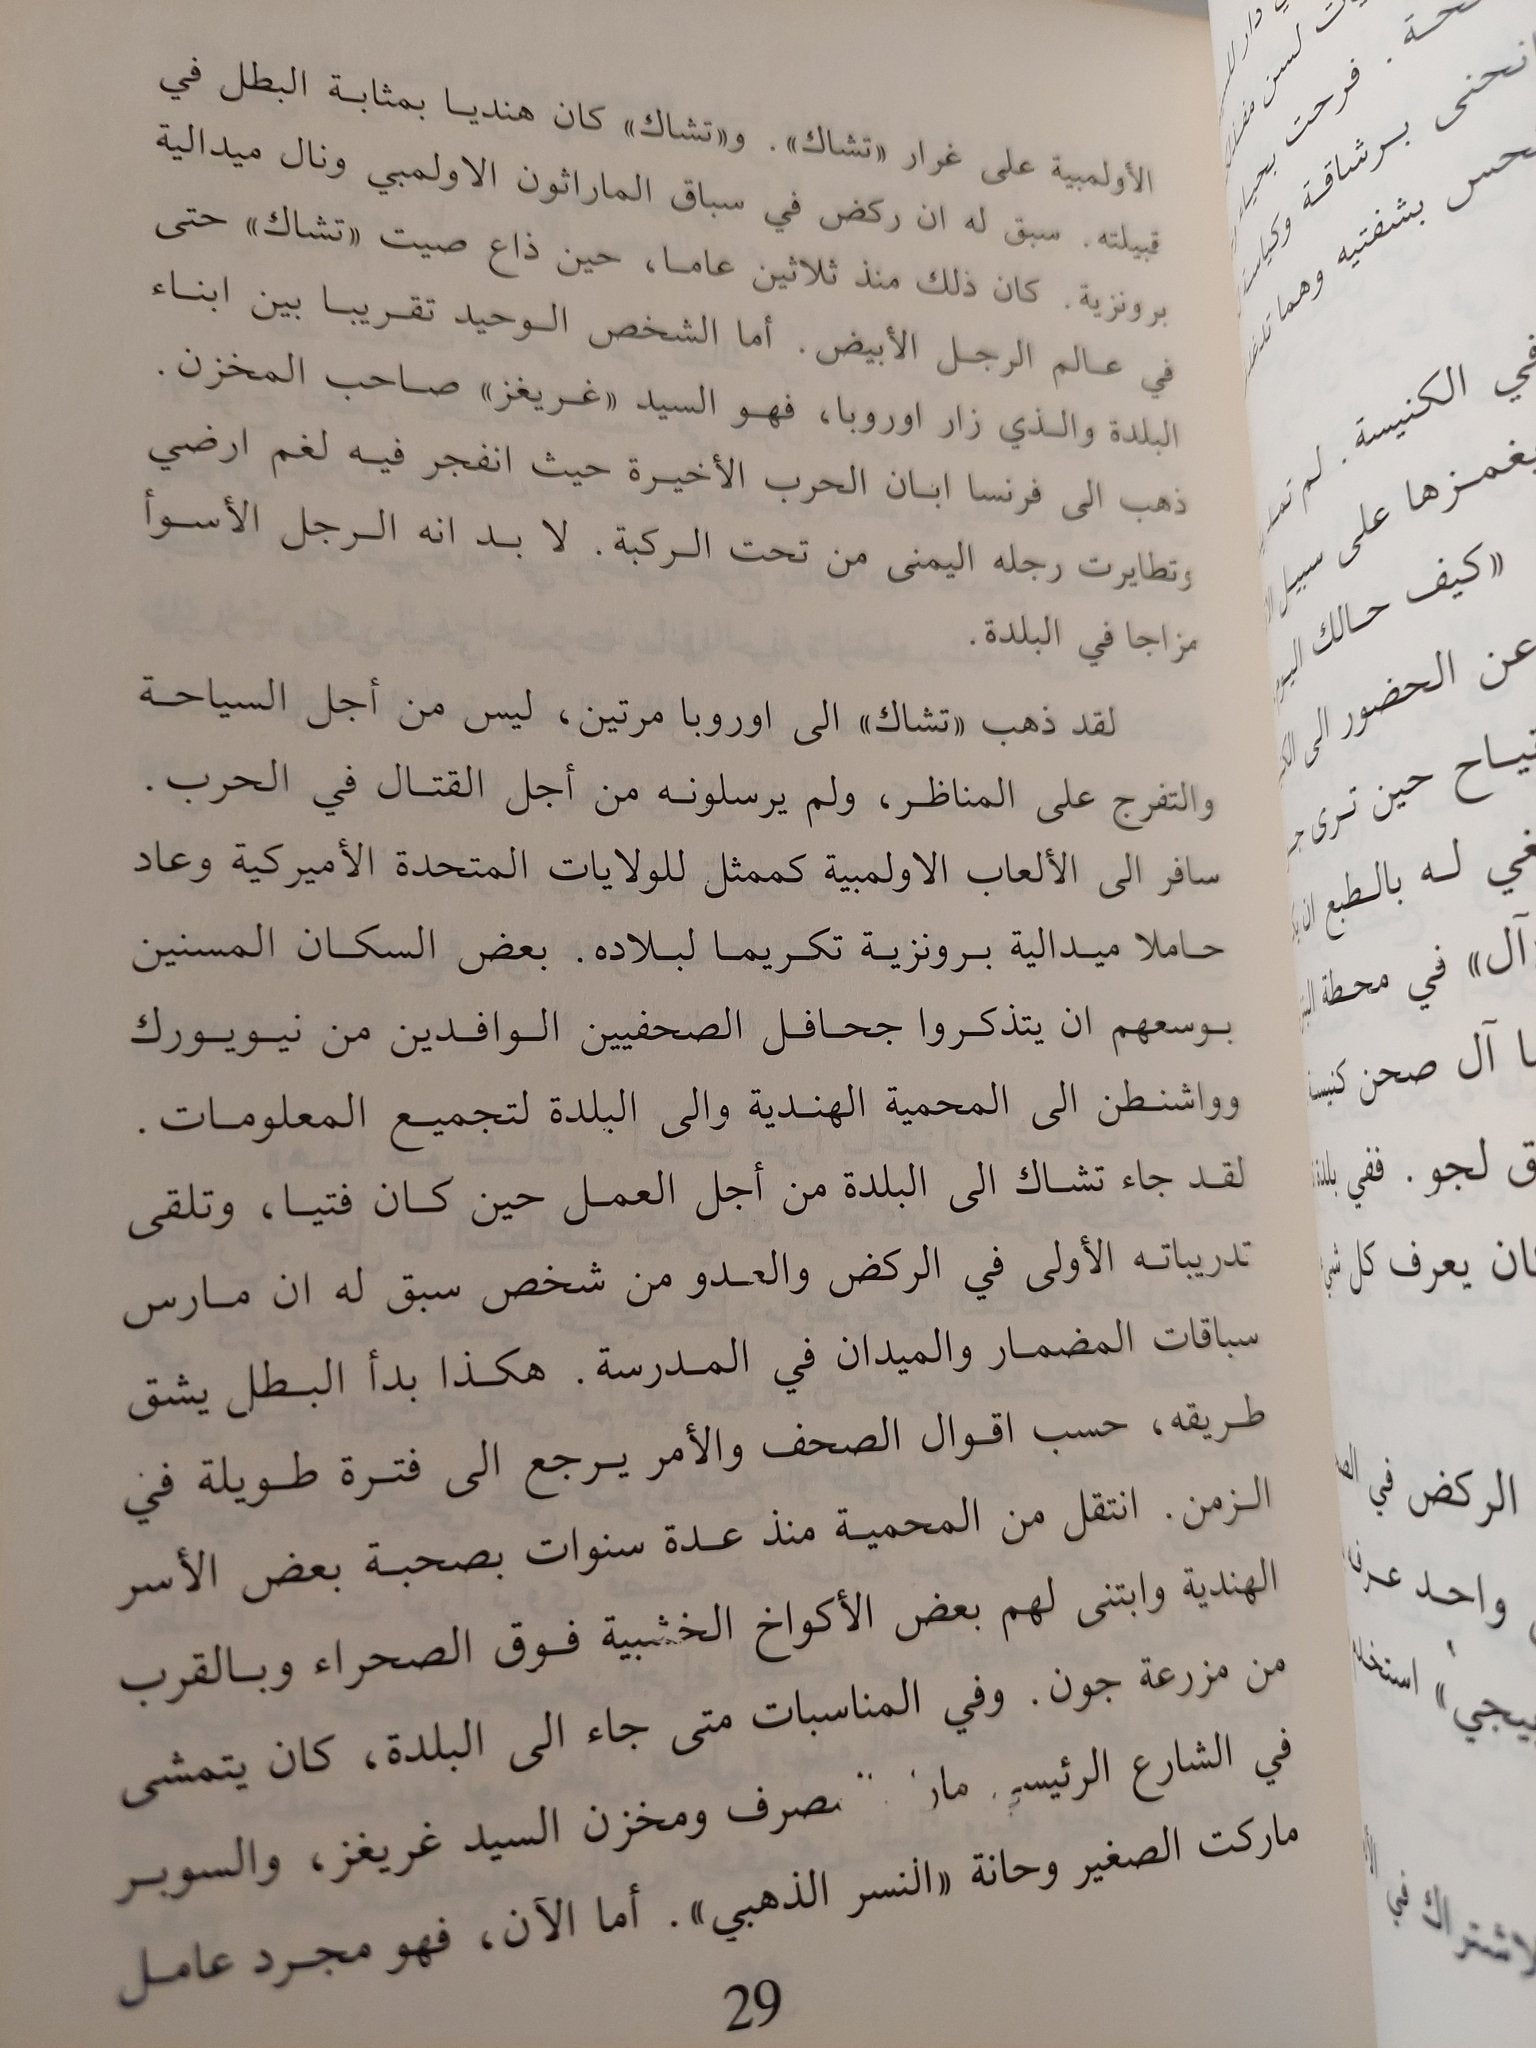 الأولمبية على غرار «تشاك». و«تشاك» كان هنديا بمثابة البطل في
قبيلته. سبق له ان ركض في سباق الماراثون الاولمبي ونال ميدالية
برونزية. كان ذلك منذ ثلاثين عاما، حين ذاع صيت «تشاك» حتى
في عالم الرجل الأبيض. أما الشخص الوحيد تقريبا بين ابناء
البلدة والذي زار اوروبا، فهو السيد «غريغز» صاحب المخزن.
ذهب الى فرنسا ابان الحرب الأخيرة حيث انفجر فيه لغم ارضي
وتطايرت رجله اليمنى من تحت الركبة. لا بد انه الرجل الأسوأ
مزاجا في البلدة.
لقد ذهب «تشاك» الى اوروبا مرتين، ليس من أجل السياحة
والتفرج على المناظر، ولم يرسلونه من أجل القتال في الحرب.
سافر الى الألعاب الاولمبية كممثل للولايات المتحدة الأميركية وعاد
حاملا ميدالية برونزية تكريما لبلاده. بعض السكان المسنين
بوسعهم ان يتذكروا جحافل الصحفيين الوافدين من نيويورك
وواشنطن الى المحمية الهندية والى البلدة لتجميع المعلومات.
لقد جاء تشاك الى البلدة من أجل العمل حين كان فتيا، وتلقى
تدريباته الأولى في الركض والعدو من شخص سبق له ان مارس
سباقات المضمار والميدان في المدرسة. هكذا بدأ البطل يشق
طريقه، حسب اقوال الصحف والأمر يرجع الى فترة طويلة في
الزمن. انتقل من المحمية منذ عدة سنوات بصحبة بعض الأسر
الهندية وابتنى لهم بعض الأكواخ الخشبية فوق الصحراء وبالقرب
من مزرعة جون. وفي المناسبات متى جاء الى البلدة، كان يتمشى
في الشارع الرئيسي ومخزن السيد غريغز، والسوبر
ماركت الصغير وحانة «النسر الذهبي». أما الآن، فهو مجرد عامل
29
في الكنيسة. لم
على سبيل
«كيف حالك
عن الحضور الى
حين ترى
له بالطبع ان
«آل» في محطة
آل صحن كنيسة
لجو. ففي بلدة
يعرف كل
الركض في
واحد